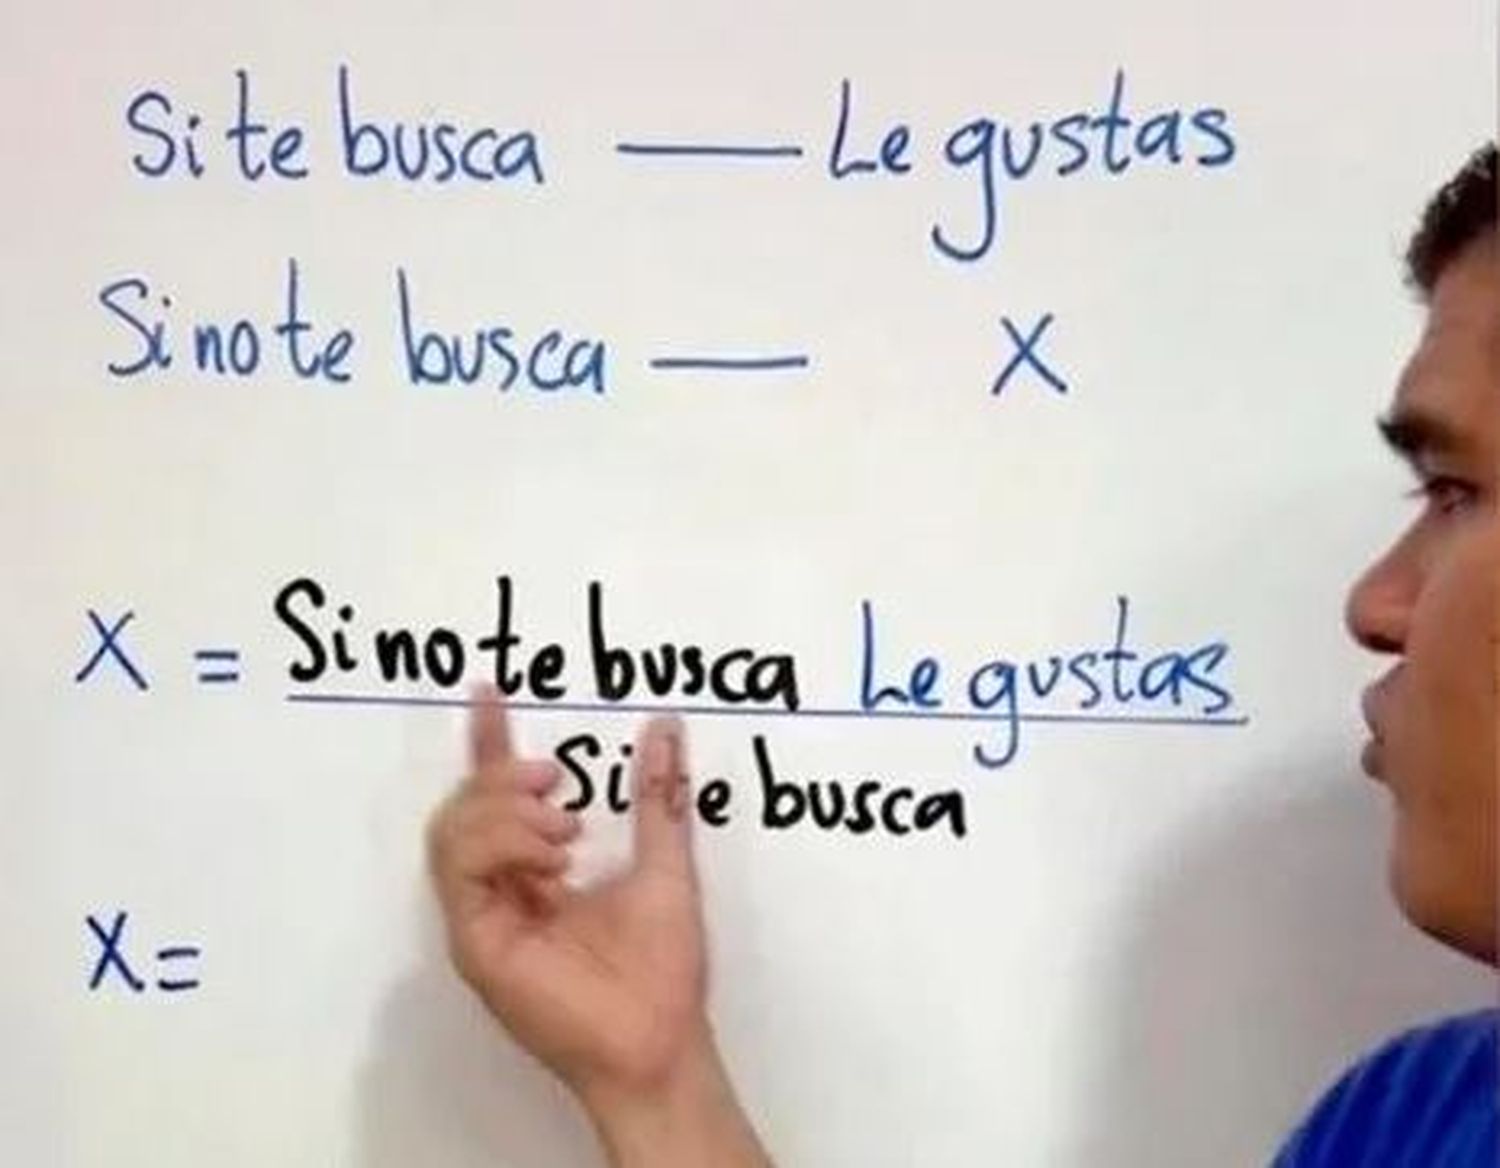 Si te busca — Le gustas
Si no te busca — X
X = Si no te busca Le gustas
Si te busca
X =